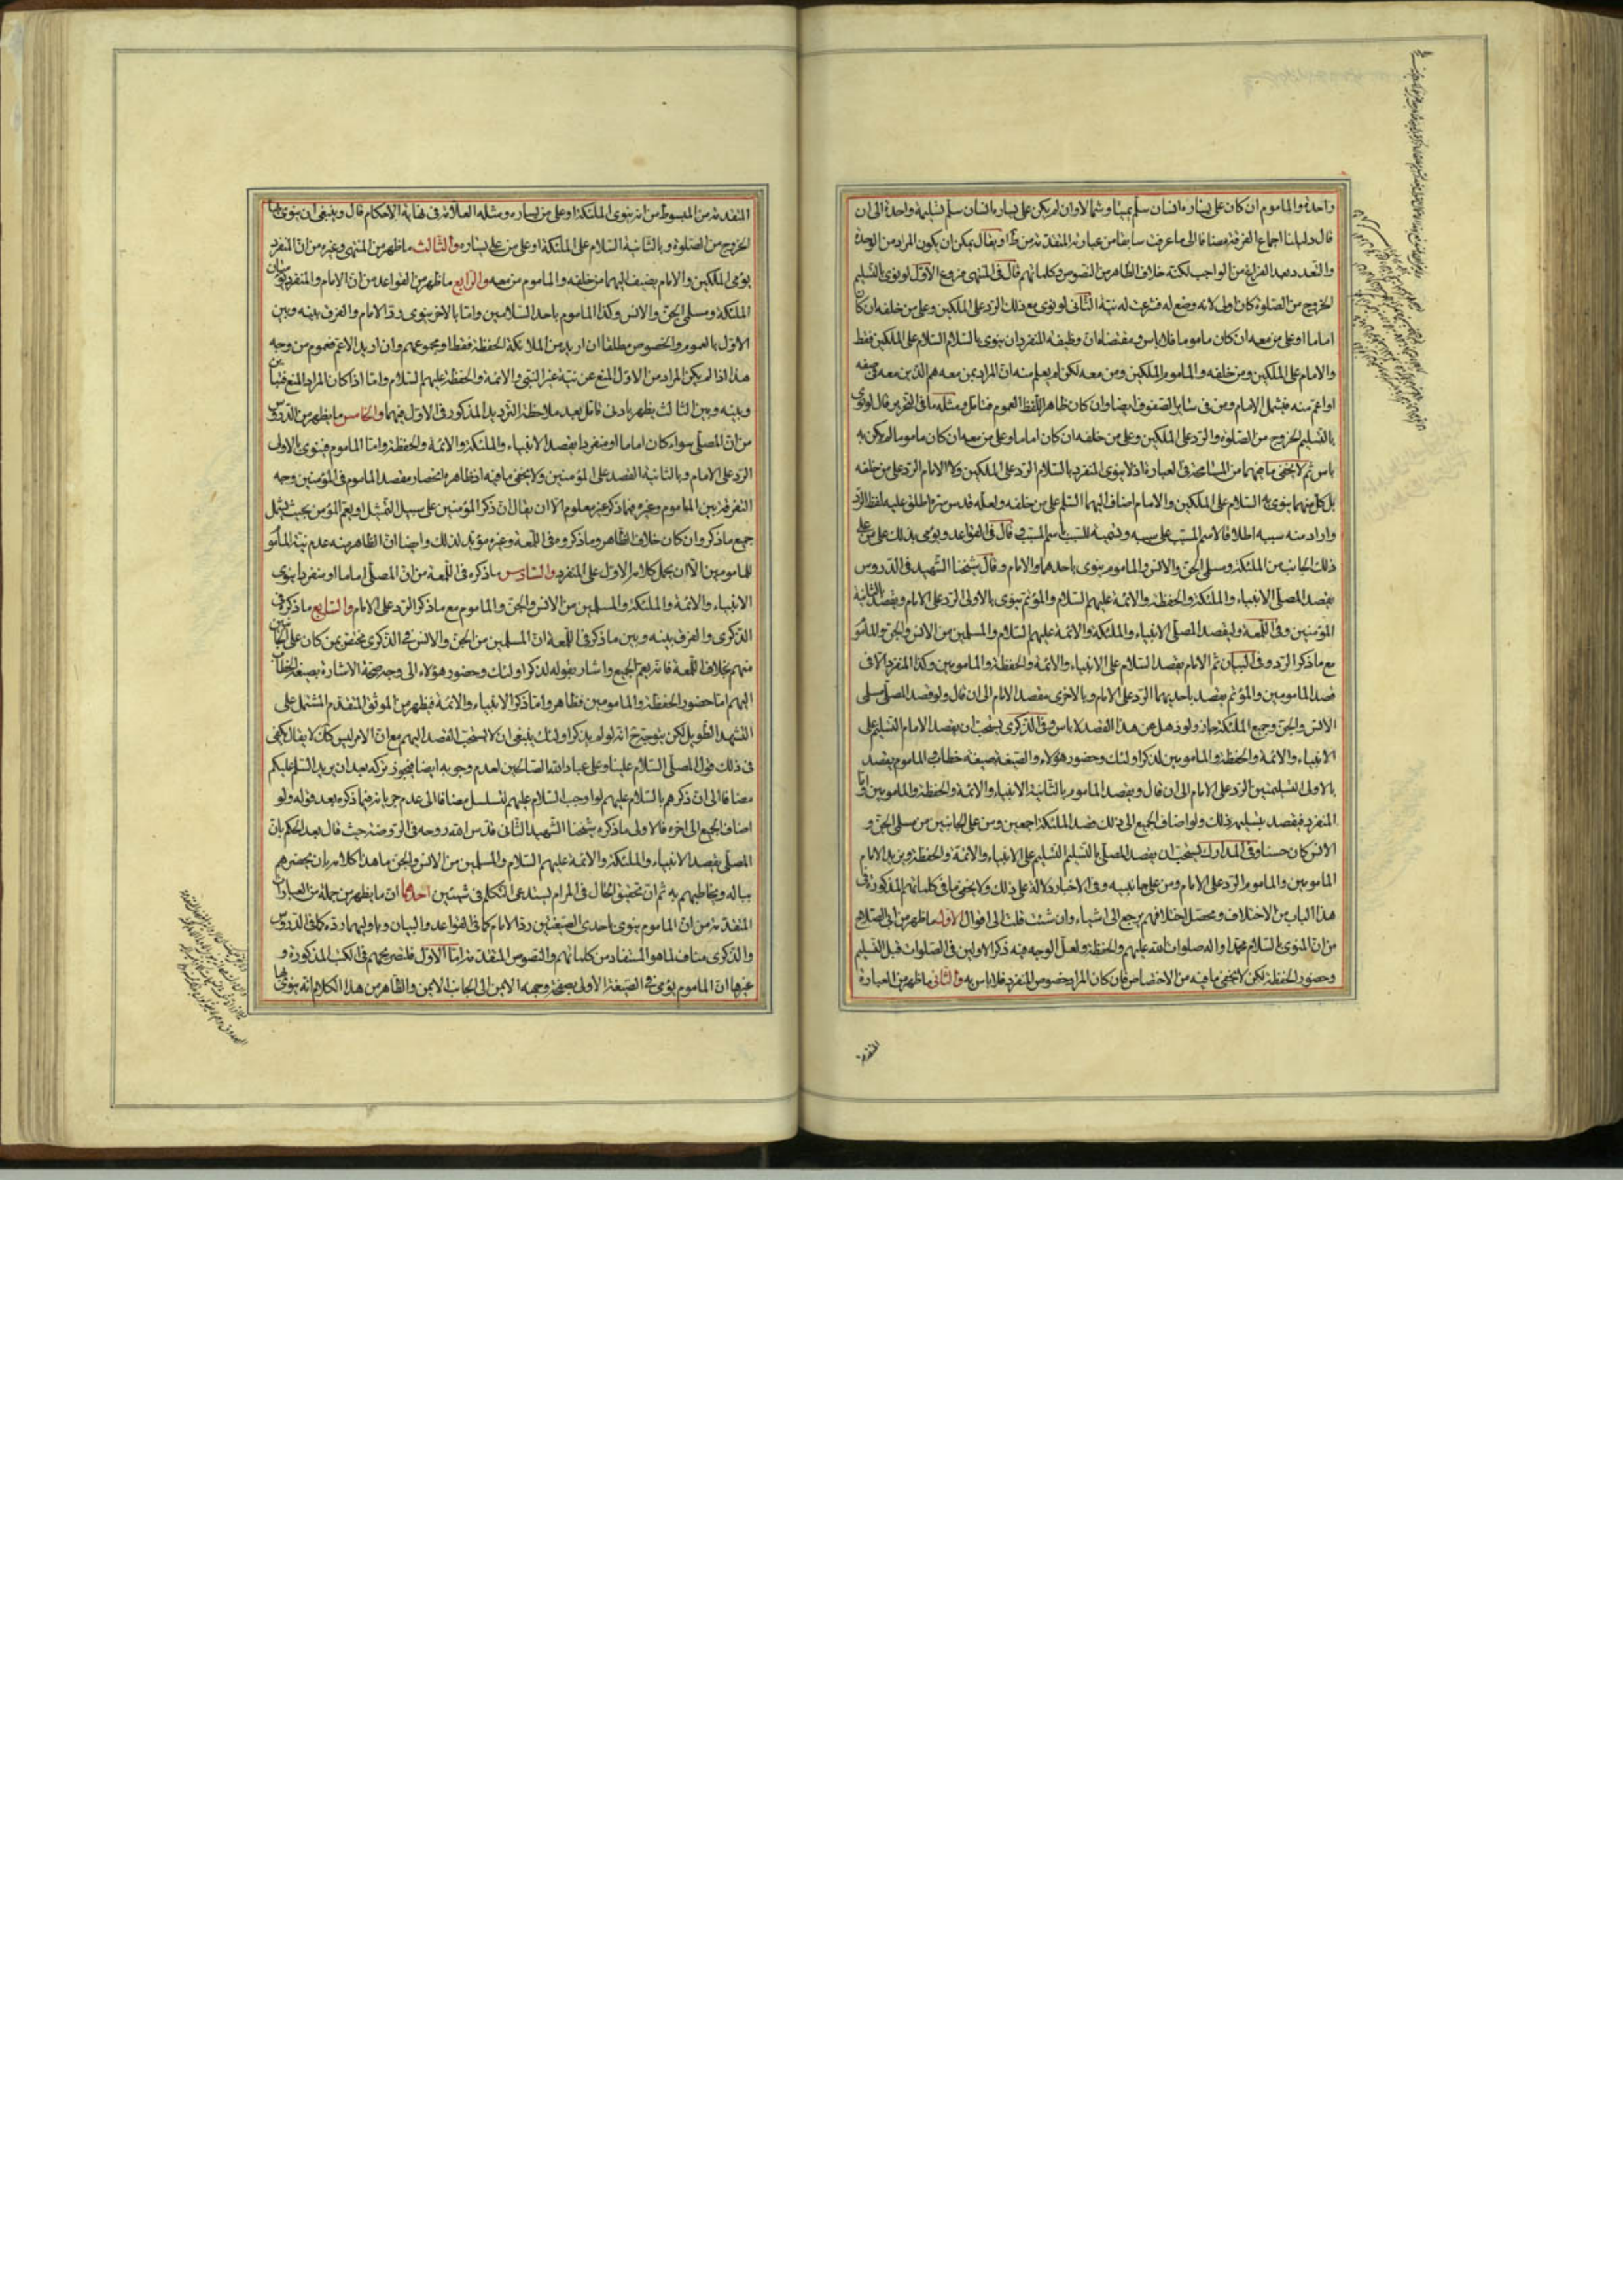 واحدة والماموم ان كان على يساره انسان سلم يمينا وشمالا وان لم يكن على يساره انسان سلم تسليمة واحدة الى ان
قال دليلنا اجماع الفرقة مضافا الى ما عرفت سابقا من عبارته المتقدمة من ط او يقال يمكن ان يكون المراد من الوحدة
والتعدد بعد الفراغ من الواجب لكنه خلاف الظاهر من النصوص وكلماتهم قال في المنتهى فروع الاول لو نوى بالتسليم
الخروج من الصلوة كان اولى لانه وضع له فشرعت له نيته الثانى لو نوى مع ذلك الرد على الملكين وعلى من خلفه ان كان
اماما او على من معه ان كان ماموما فلا باس ومقتضاه ان وظيفة المنفرد ان ينوى بالسلام السلام على الملكين فقط
والامام على الملكين ومن خلفه والماموم الملكين ومن معه لكن لم يعلم منه ان المراد بمن معه هم الذين معه في صفه
او اعم منه فيشمل الامام ومن في ساير الصفوف ايضا وان كان ظاهر اللفظ العموم فتامل ومثله ما في التحرير قال لو نوى
بالتسليم الخروج من الصلوة والرد على الملكين وعلى من خلفه ان كان اماما وعلى من معه ان كان ماموما لم يكن به
باس ثم لا يخفى ما فيهما من المسامحة في العبارة اذ لا ينوى المنفرد بالسلام الرد على الملكين ولا الامام الرد على من خلفه
بل كل منهما ينوى به السلام على الملكين والامام اضاف اليهما السلم على من خلفه ولعله قدس سره اطلق عليه لفظ الرد
واراد منه سببه اطلاقا لاسم المسبب على سببه وتسمية للسبب باسم المسبب وقال في القواعد ويومى بذلك على من على
ذلك الجانب من الملئكة ومسلمى الجن والانس والماموم ينوى باحدهما والامام وقال شيخنا الشهيد في الدروس
يقصد المصلى الانبياء والملئكة والحفظة والائمة عليهم السلام والمؤتم ينوى بالاولى الرد على الامام ويقصد بالثانية
المؤمنين وفى اللمعة وليقصد المصلى الانبياء والملئكة والائمة عليهم السلام والمسلمين من الانس والجن والمأموم
مع ما ذكر الرد وفى البيان ثم الامام يقصد السلام على الانبياء والائمة والحفظة والمامومين وكذا المنفرد الا في
قصد المامومين والمؤتم يقصد باحديهما الرد على الامام وبالاخرى مقصد الامام الى ان قال ولو قصد المصلى مسلمى
الانس والجن وجميع الملئكة جاز ولو ذهل عن هذا القصد لا باس وفي الذكرى يستحب ان يقصد الامام التسليم على
الانبياء والائمة والحفظة والمامومين لذكر اولئك وحضور هؤلاء والصيغة صيغة خطاب والماموم يقصد
بالاولى التسليمتين الرد على الامام الى ان قال ويقصد الماموم بالثانية الانبياء والائمة والحفظة والمامومين واما
المنفرد فيقصد بتسليمه ذلك ولو اضاف الجميع الى ذلك قصد الملئكة اجمعين ومن على الجانبين من مسلمى الجن و
الانس كان حسنا وفى المدارك يستحب ان يقصد المصلى بالتسليم التسليم على الانبياء والائمة والحفظة ويزيد الامام
المامومين والماموم الرد على الامام ومن على جانبيه وفى الاخبار دلالة على ذلك ولا يخفى ما في كلماتهم المذكورة في
هذا الباب من الاختلاف ومحصل اختلافهم يرجع الى اشياء وان شئت قلت الى اقوال الاول ما ظهر من ابى الصلاح
من ان المنوى بالسلام محمد اواله صلوات الله عليهم والحفظة ولعل الوجه فيه ذكر الاولين في الصلوات قبل التسليم
وحضور الحفظة لكن لا يخفى ما فيه من الاختصاص فان كان المراد خصوص المنفرد فلا باس به والثانى ما ظهر من العبارة
المتقدمة
المتقدمة من المبسوط من انه ينوى الملئكة او على من يساره ومثله العلامة في نهاية الاحكام قال وينبغى ان ينوى بها
الخروج من الصلوة وبالثانية السلام على الملئكة او على من على يساره والثالث ما ظهر من المنتهى وغيره من ان المنفرد
يومى الملكين والامام يضيف اليهما من خلفه والماموم من معه والرابع ما ظهر من القواعد من ان الامام والمنفرد ينويان
الملئكة ومسلمى الجن والانس وكذا الماموم باحد السلامين واما بالاخر ينوى رد الامام والفرق بينه وبين
الاول بالعموم والخصوص مطلقا ان اريد من الملائكة الحفظة فقط او مجموعهم وان اريد الاعم فعموم من وجه
هذا اذا لم يكن المراد من الاول المنع عن نية غير النبى والائمة والحفظة عليهم السلام واما اذا كان المراد المنع فتباين
وبينه وبين الثالث يظهر بادنى تامل بعد ملاحظة الترديد المذكور في الاول فيهما والخامس ما يظهر من الدروس
من ان المصلى سواء كان اماما او منفردا يقصد الانبياء والملئكة والائمة والحفظة واما الماموم فينوى بالاولى
الرد على الامام وبالثانية القصد على المؤمنين ولا يخفى ما فيه اذ ظاهره انحصار مقصد الماموم في المؤمنين وجه
التفرقة بين الماموم وغيره فيما ذكر غير معلوم الا ان يقال ان ذكر المؤمنين على سبيل التمثيل او يعم المؤمن بحيث يشمل
جميع ما ذكر وان كان خلاف الظاهر وما ذكروه في اللمعة وغيره مؤيد لذلك وايضا ان الظاهر منه عدم نية المأموم
للمامومين الا ان يحمل كلامه الاول على المنفرد والسادس ما ذكره في اللمعة من ان المصلى اماما او منفردا ينوى
الانبياء والائمة والملئكة والمسلمين من الانس والجن والماموم مع ما ذكر الرد على الامام والسابع ما ذكر في
الذكرى والفرق بينه وبين ما ذكر في اللمعة ان المسلمين من الجن والانس في الذكرى مختص بمن كان على الجانبين
منهم بخلاف اللمعة فانه يعم الجميع واشار بقوله لذكر اولئك وحضور هؤلاء الى وجه صحة الاشارة بصيغة الخطاب
اليهم اما حضور الحفظة والمامومين فظاهر واما ذكر الانبياء والائمة فيظهر من الموثق المتقدم المشتمل على
التشهد الطويل لكن يتوجه ح انه لو لم يذكر اولئك ينبغى ان لا يستحب القصد اليهم مع ان الامر ليس كك لا يقال يكفى
في ذلك قول المصلى السلام علينا وعلى عباد الله الصالحين لعدم وجوبه ايضا فيجوز تركه بعد ان يريد السلم عليكم
مضافا الى ان ذكرهم بالسلام عليهم لو اوجب السلام عليهم لتسلسل مضافا الى عدم جريانه فيما ذكره بعد قوله ولو
اضاف الجميع الى اخره فالاولى ما ذكره شيخنا الشهيد الثانى قدس الله روحه في الروضة حيث قال بعد الحكم بان
المصلى يقصد الانبياء والملئكة والائمة عليهم السلام والمسلمين من الانس والجن ما هذا كلامه بان يحضرهم
بباله ويخاطبهم به ثم ان تحقيق الحال في المرام يستدعى التكلم في شيئين احدهما ان ما يظهر من جملة من العبارات
المتقدمة من ان الماموم ينوى باحدى الصيغتين رد الامام كما في القواعد والبيان وباوليهما رده كما في الدروس
والذكرى مناف لما هو المستفاد من كلماتهم والنصوص المتقدمة اما الاول فلتصريحهم في الكتب المذكورة و
غيرها ان الماموم يومى في الصيغة الاولى بصفحة وجهه الايمن الى الجانب الايمن والظاهر من هذا الكلام انه ينوى بها